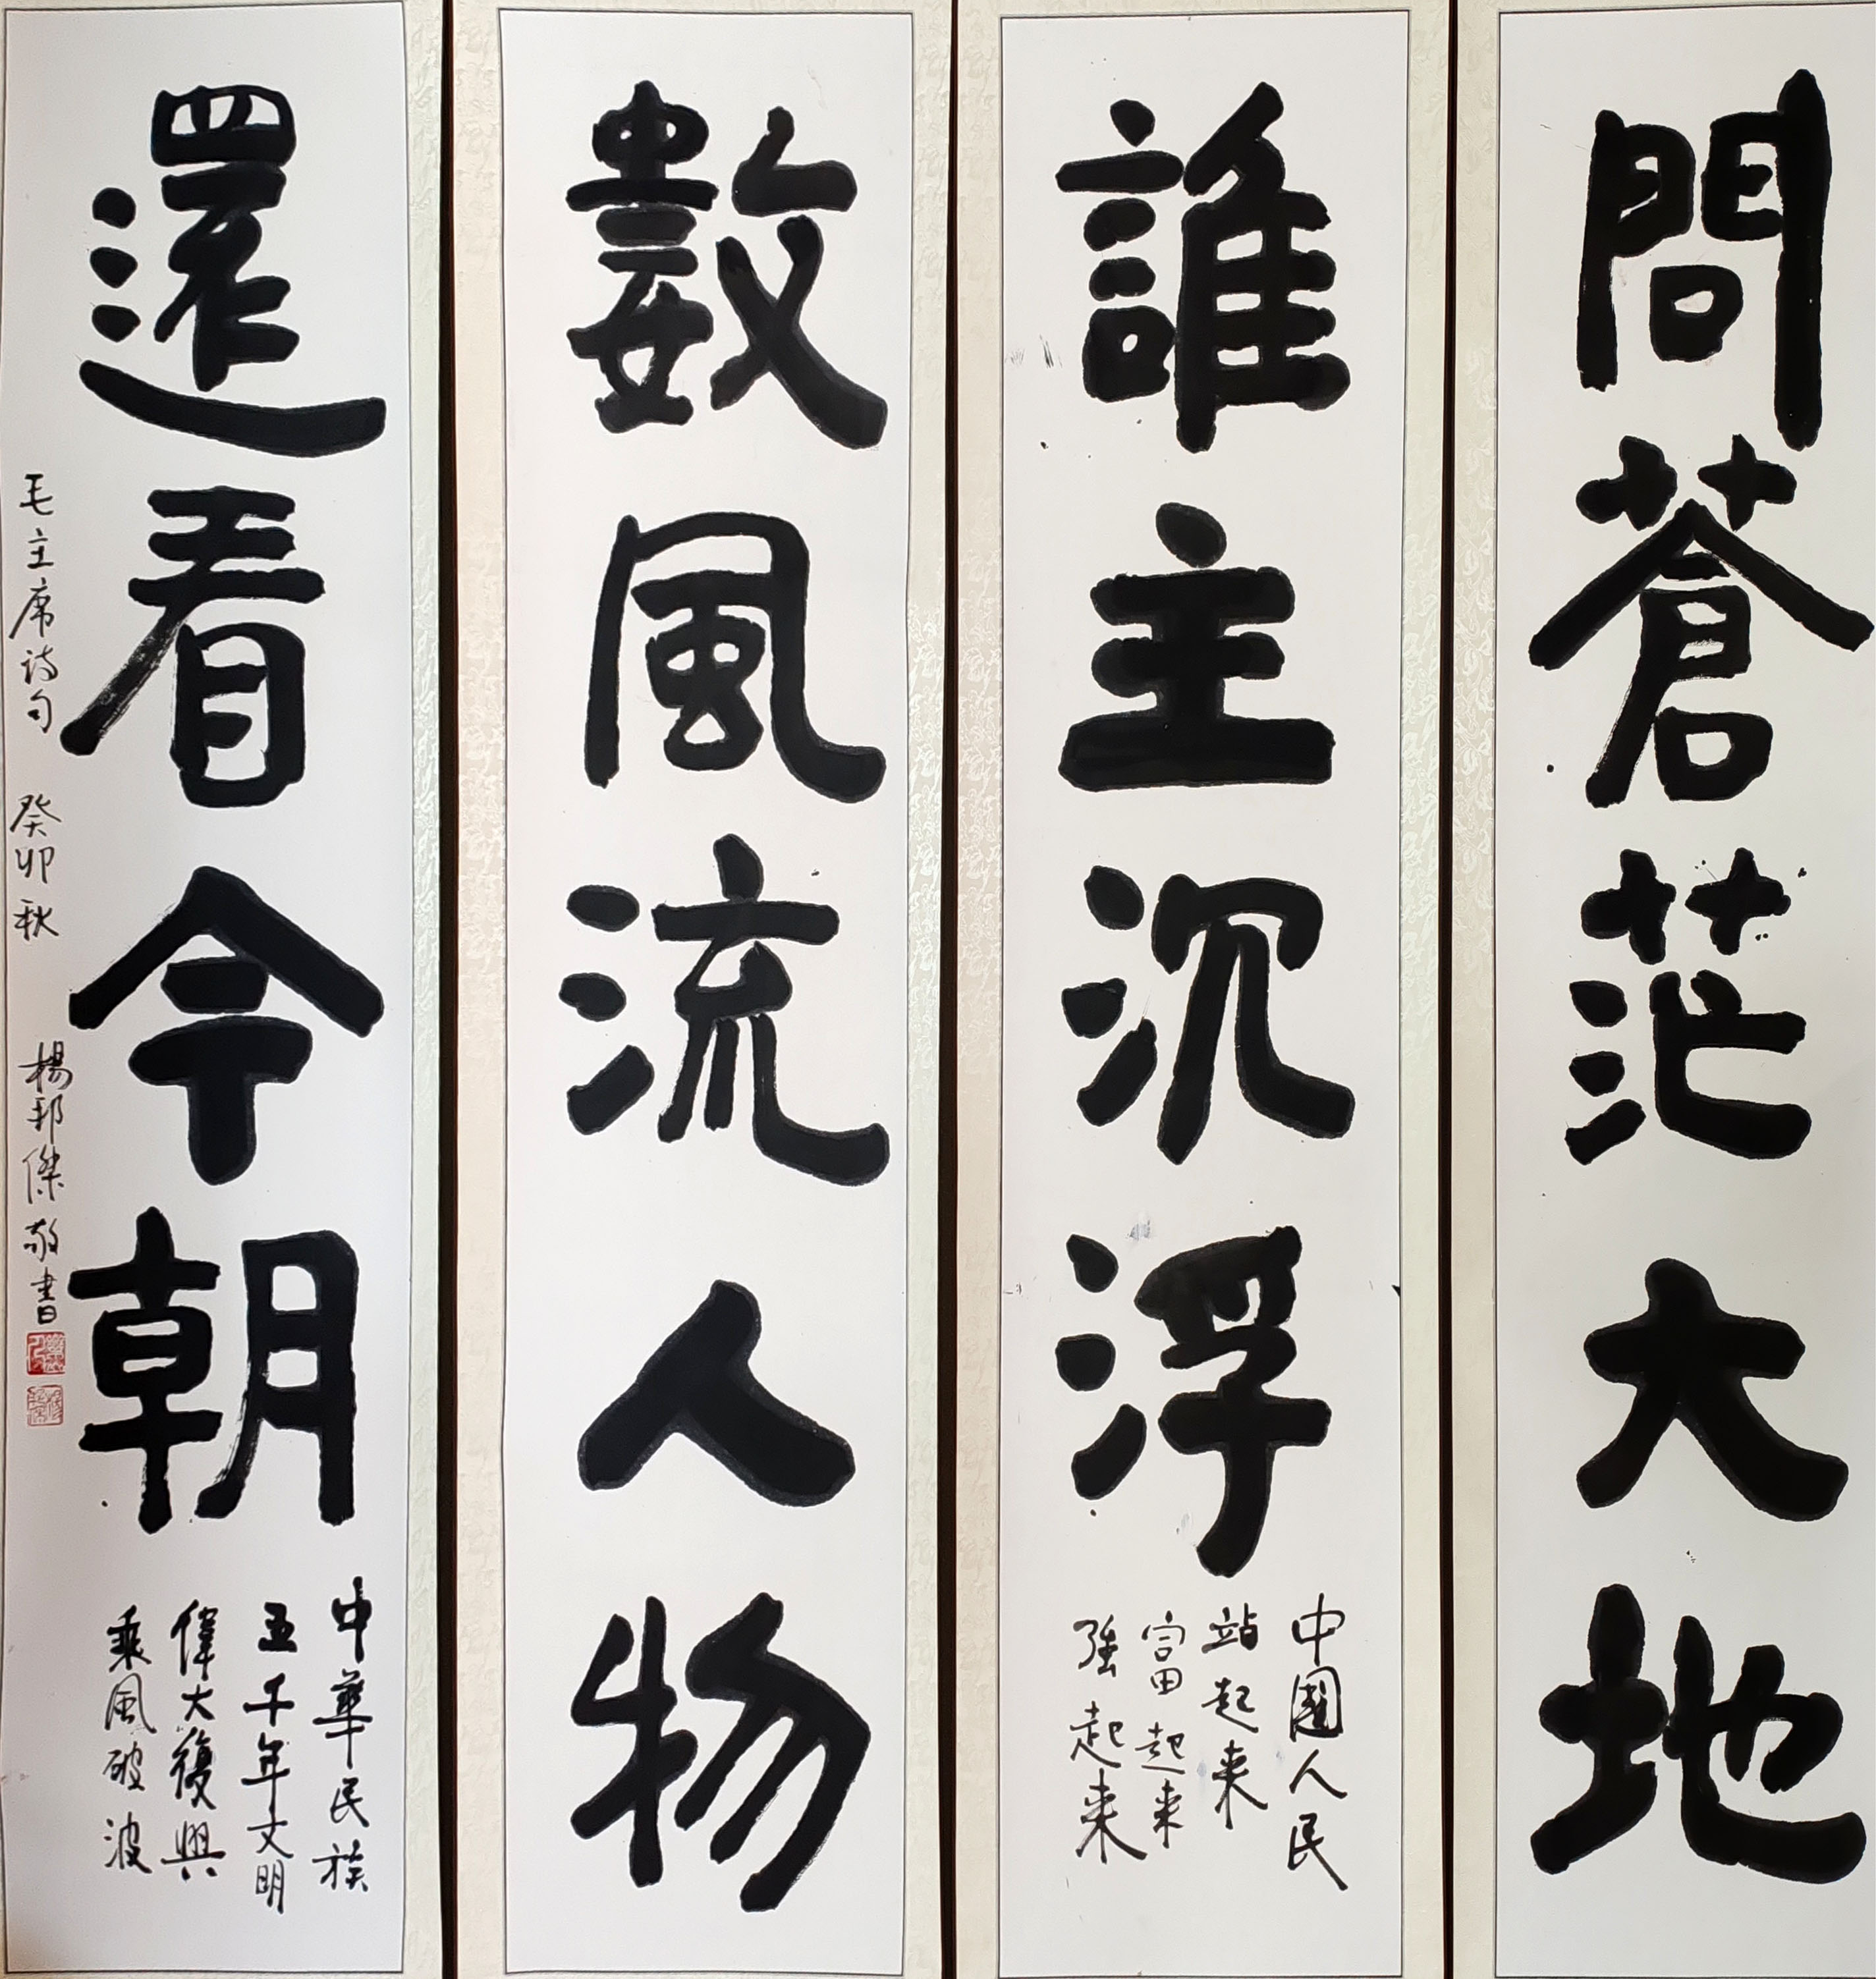 問蒼茫大地
誰主沉浮
中國人民
站起来
富起来
强起来
數風流人物
還看今朝
中華民族
五千年文明
偉大復興
乘風破波
毛主席诗句 癸卯秋 楊邦傑敬書